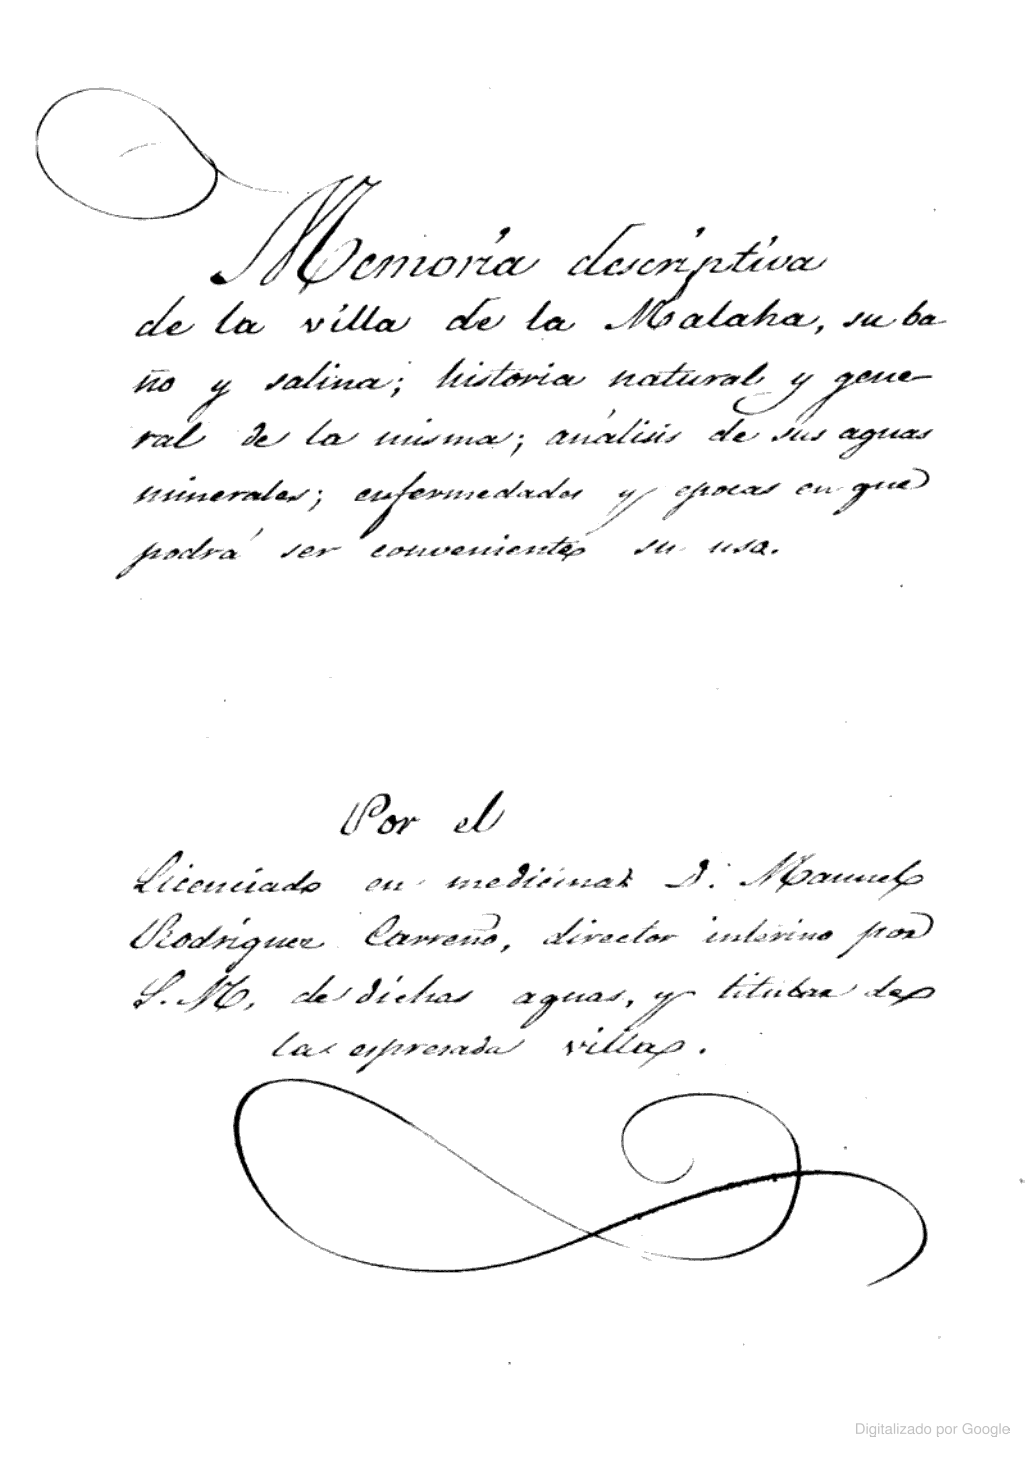 Memoria descriptiva
de la villa de la Malaha, su ba-
ño y salina; historia natural y gene-
ral de la misma; análisis de sus aguas
minerales; enfermedades y epocas en que
podrá ser conveniente su uso.
Por el
Licenciado en medicina D. Manuel
Rodriguez Carreño, director interino por
S. M. de dichas aguas, y titular de
la espresada villa.
Digitalizado por Google